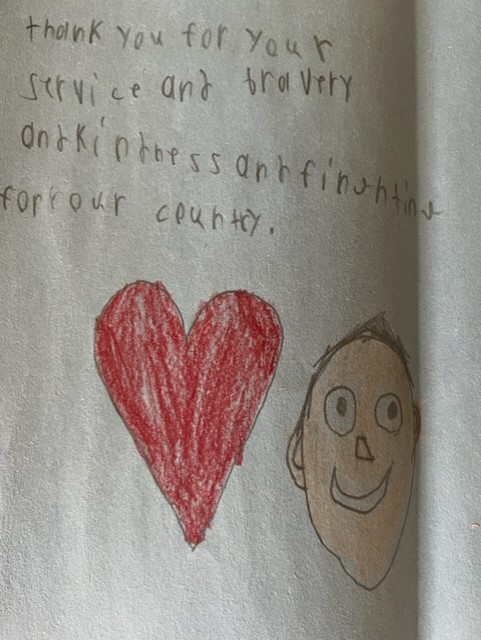 thank you for your
service and bravery
and kindness and finghting
for our country.